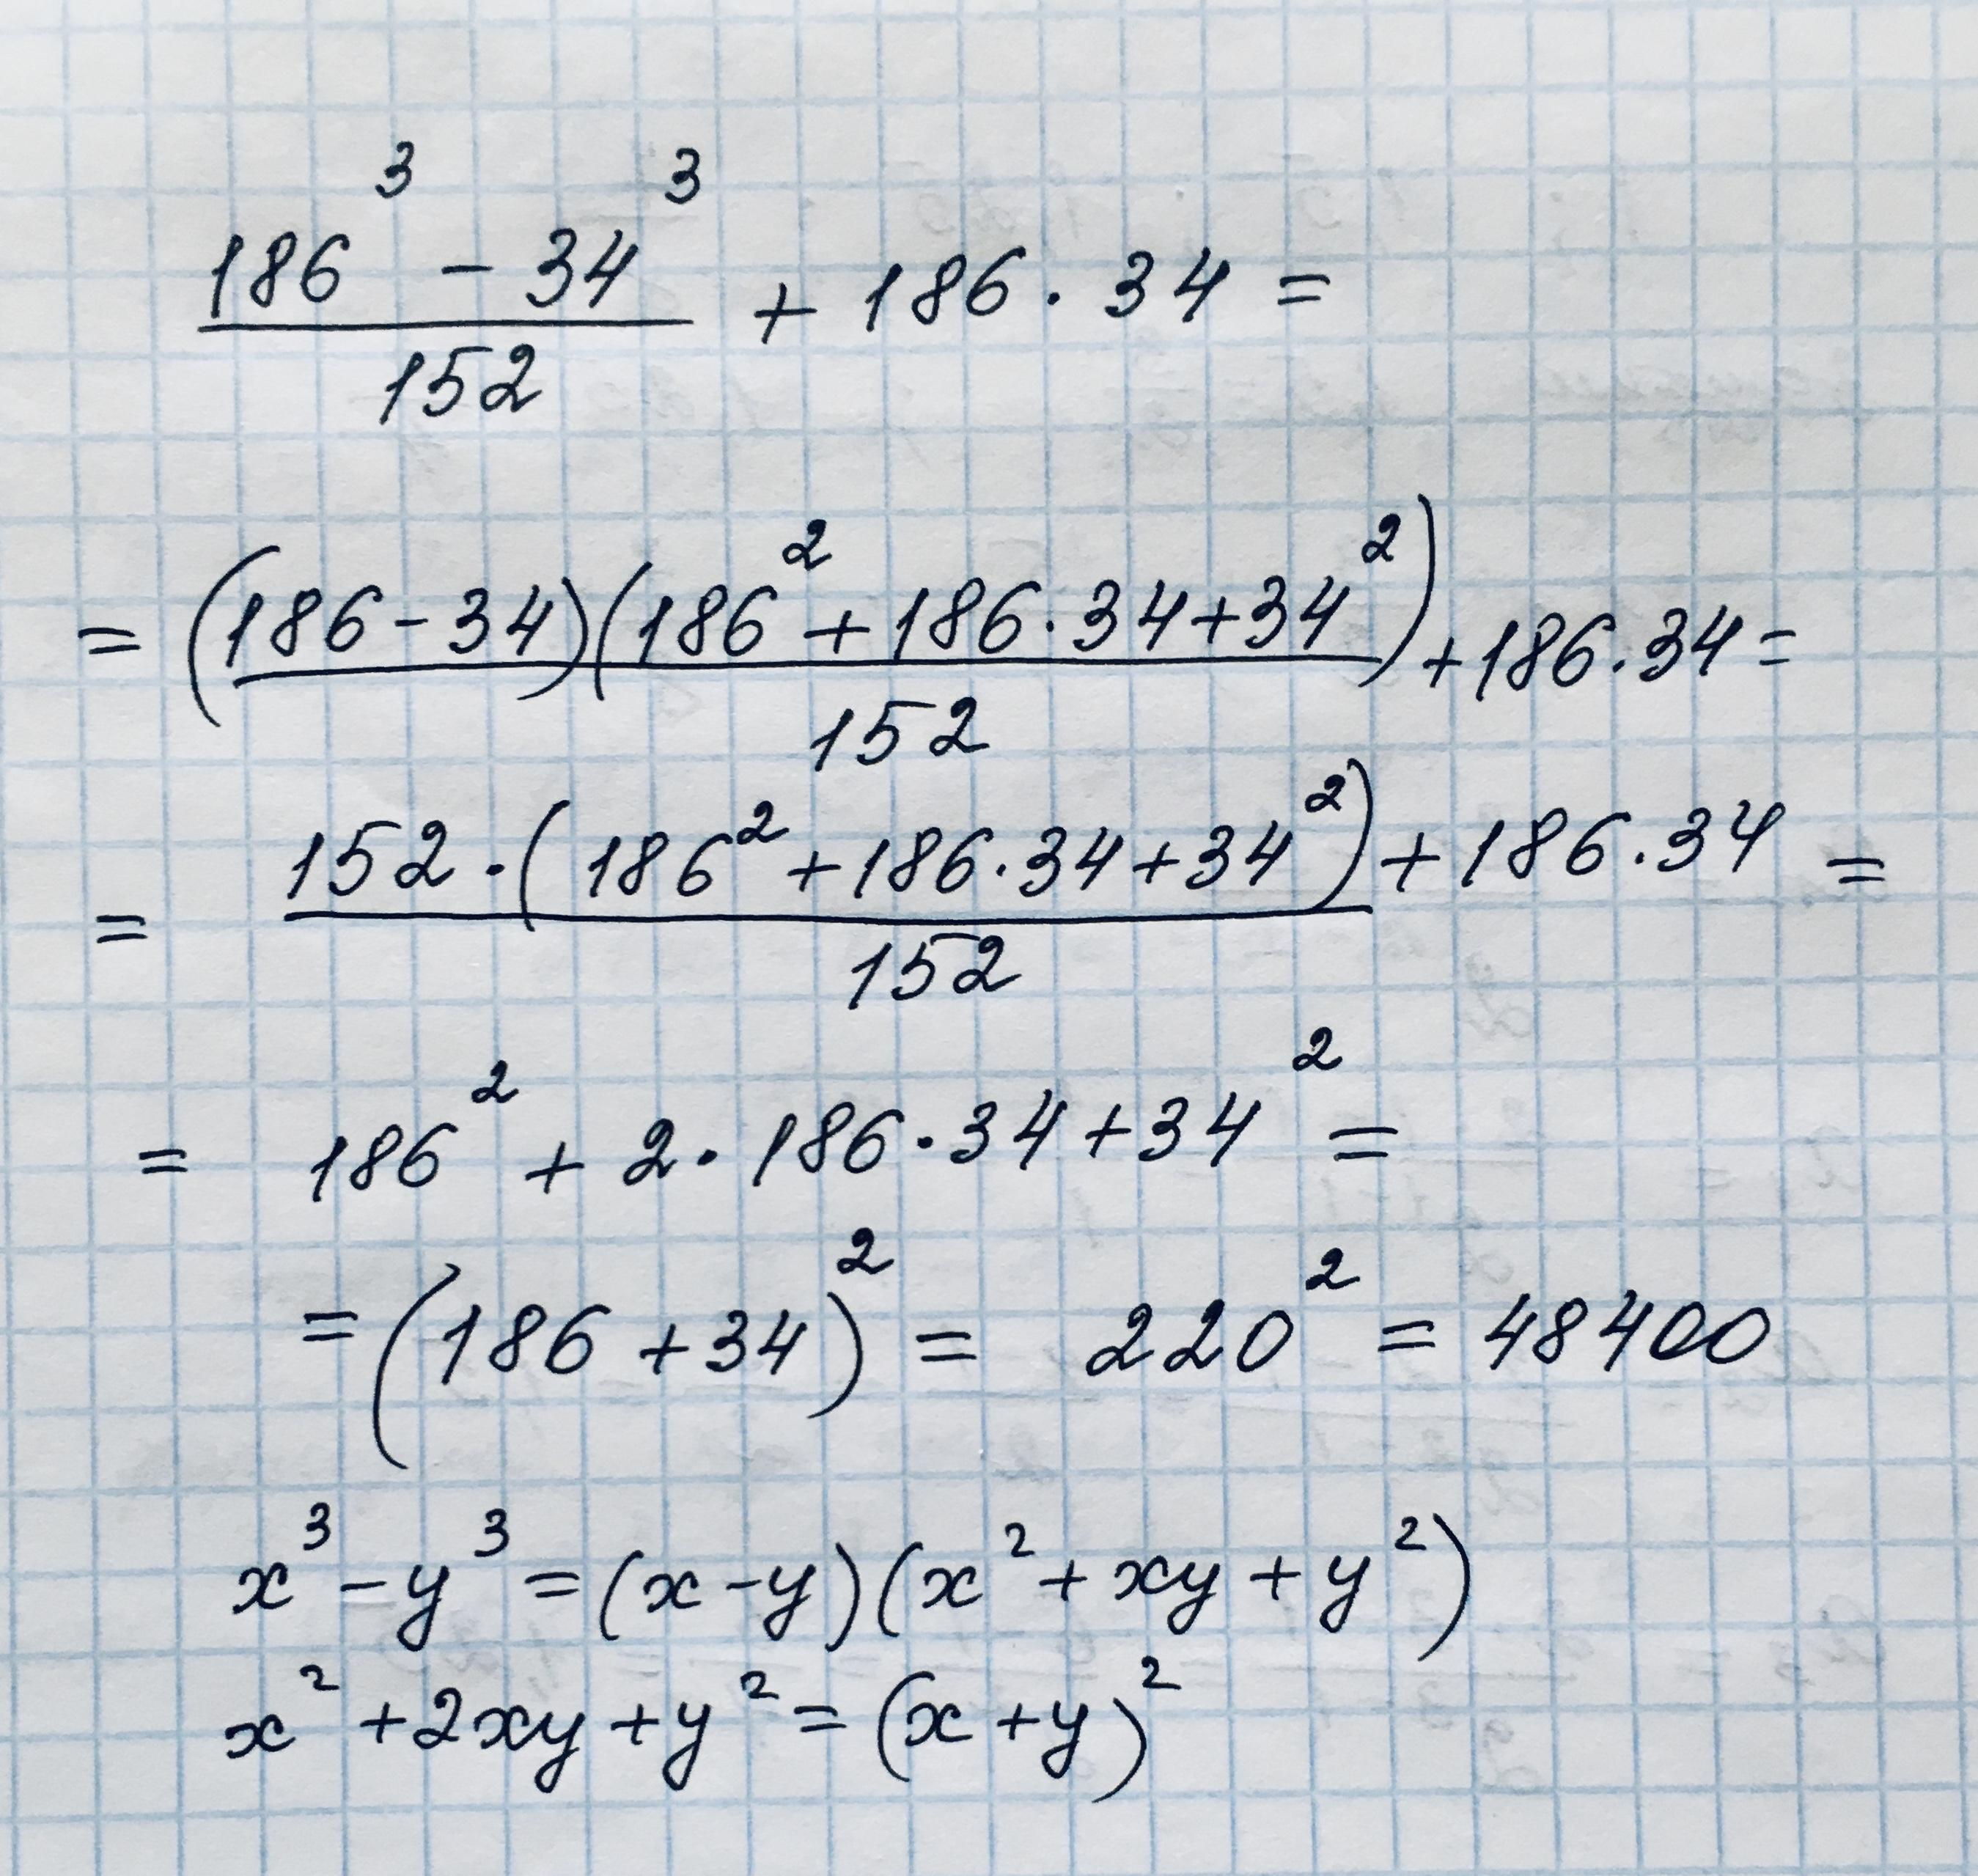 (186³ - 34³)/152 + 186 · 34 =
= ((186 - 34)(186² + 186 · 34 + 34²))/152 + 186 · 34 =
= (152 · (186² + 186 · 34 + 34²))/152 + 186 · 34 =
= 186² + 2 · 186 · 34 + 34² =
= (186 + 34)² = 220² = 48400
x³ - y³ = (x - y)(x² + xy + y²)
x² + 2xy + y² = (x + y)²